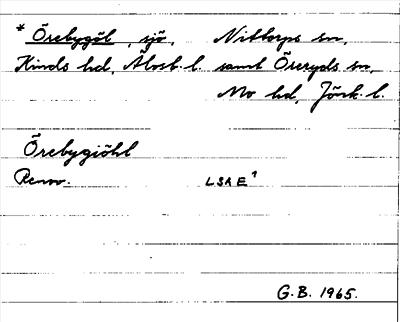 * Örebygöl, sjö, Nittorps sn,
Kinds hd, Älvsb. l. samt Öreryds sn,
Mo hd, Jönk. l.
Örebygiöhl
Renov. LSA E¹
G.B. 1965.